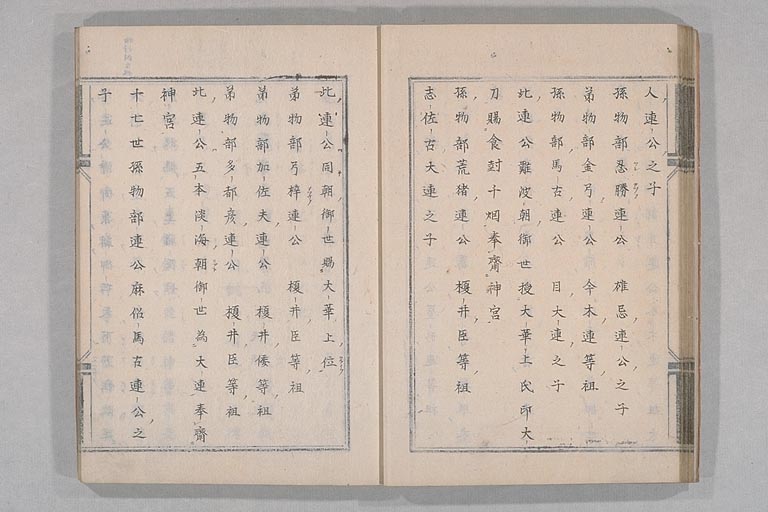 人連公之子
孫物部忍勝連公　雄忌連公之子
弟物部金弓連公　今木連等祖
孫物部馬古連公　目大連之子
此連公難波朝御世授大華上氏印大
刀賜食封千烟奉齋神宮
孫物部荒猪連公　榎井臣等祖
志佐古大連之子
此連公同朝御世賜大華上位
弟物部弓梓連公　榎井臣等祖
弟物部加佐夫連公　榎井倭等祖
弟物部多都彦連公　榎井臣等祖
此連公五本淡海朝御世為大連奉齋
神宮
十七世孫物部連公麻侶馬古連公之
子